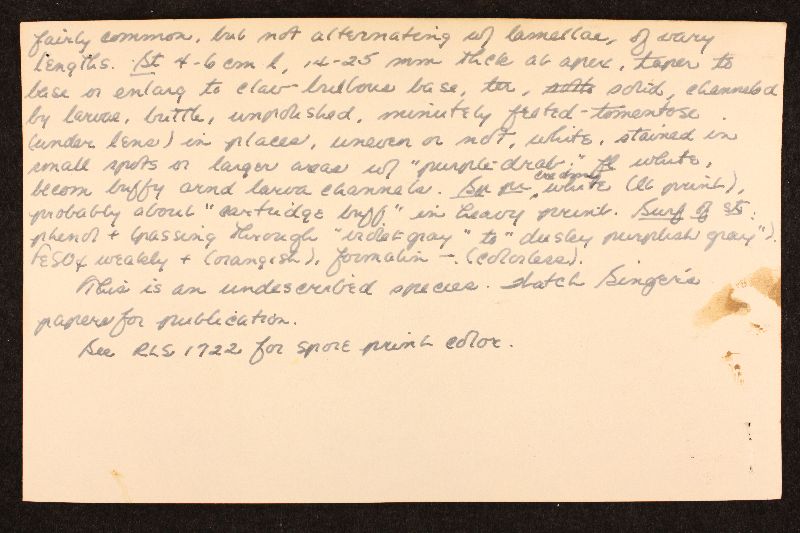 fairly common, but not alternating w/ lamellae, of vary
lengths. St 4-6 cm l, 14-25 mm thick at apex, taper to
base or enlarg to clav-bulbous base, ter, solid, channeled
by larvae, brittle, unpolished, minutely felted-tomentose
(under lens) in places, uneven or not, white, stained in
small spots or larger areas w/ "purple-drab." Fl white,
becom buffy arnd larva channels. Sp pr creamy white (lt print),
probably about "cartridge buff" in heavy print. Surf of St:
phenol + (passing through "violet-gray" to "dusky purplish gray").
FeSO4 weakly + (orangish), formalin -. (colorless).
This is an undescribed species. Watch Singer's
papers for publication.
See RLS 1722 for spore print color.